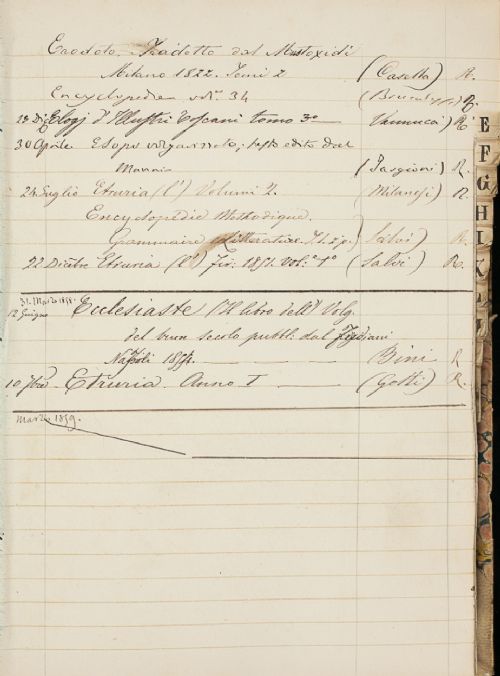 Erodoto. Tradotto dal Mustoxidi
Milano 1822. Tomi 2 (Casella) R.
Encyclopedia vol. 34 R.
Elogj d'Illustri Toscani tomo 3º — Vannucci R.
30 Aprile Esopo volgarizzato, testo edito dal
Mannio R.
24 Luglio Etruria (l') Volumi 2. (Milanesi) R.
Encyclopédie Méthodique.
Grammaire & Litterature. (Salvi) R.
22 Etruria (l') 1851. vol: 1º (Salvi) R.
31. Marzo 1858.
12 Giugno Ecclesiaste (Il libro dell') Volg.
del buon secolo pubbl. dal
Napoli — Bini R
10 Etruria. Anno I — (Gotti) R.
Marzo 1859.
E
F
G
H
I
K
L